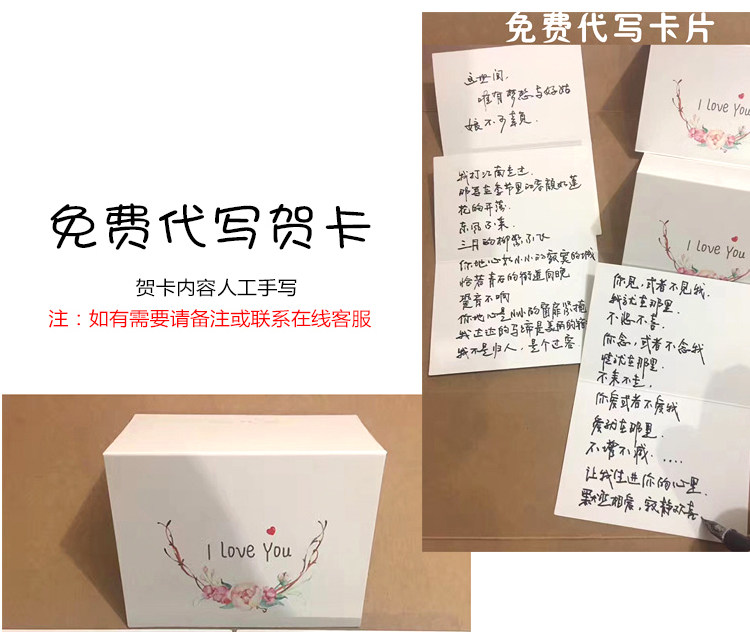 免费代写卡片
这世间,
唯有梦想与好姑
娘不可辜负.
I love You
我打江南走过.
那等在季节里的容颜如莲
花的开落.
东风不来
三月的柳絮不飞
你地心如小小的寂寞的城
恰若青石的街道向晚
跫音不响
你地心是小小的窗扉紧掩
我达达的马蹄是美丽的错
我不是归人，是个过客
I love You
你见,或者不见我.
我就在那里.
不悲不喜.
你念,或者不念我
情就在那里.
不来不走.
你爱或者不爱我
爱就在那里.
不增不减.....
让我住进你的心里.
默然相爱,寂静欢喜
免费代写贺卡
贺卡内容人工手写
注：如有需要请备注或联系在线客服
I love You